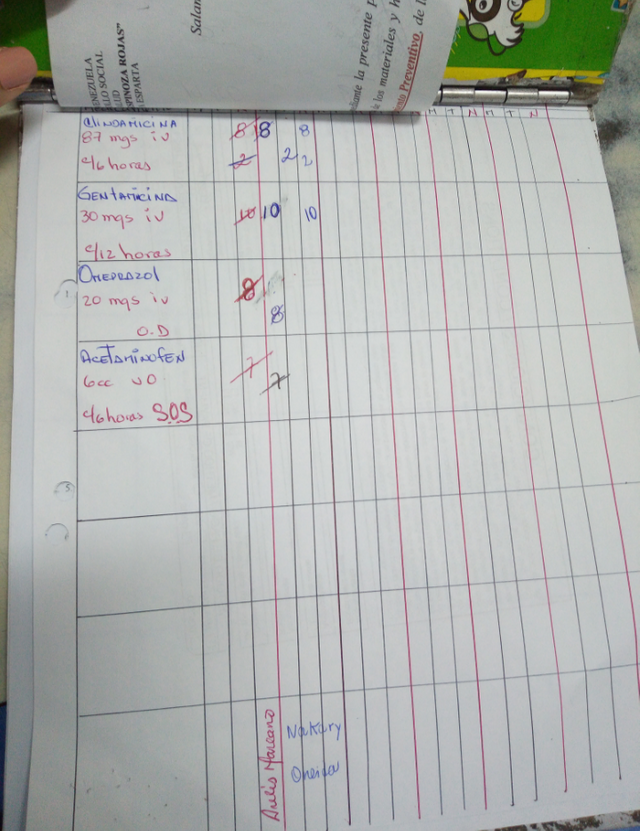 NEZUELA
LLO SOCIAL
LUD
SPINOZA ROJAS"
ESPARTA
Salan
diante la presente P
los materiales y h
Preventivo, de l
M T N M T N
Clindamicina
87 mgs iv 8 8 8
c/6 horas 2 2 2
Gentamicina
30 mgs iv 10 10 10
c/12 horas
Omeprazol
20 mgs iv 8
O.D 8
Acetaminofen
6cc vo 7 7
c/6 horas S.O.S
Nakary
Oneida